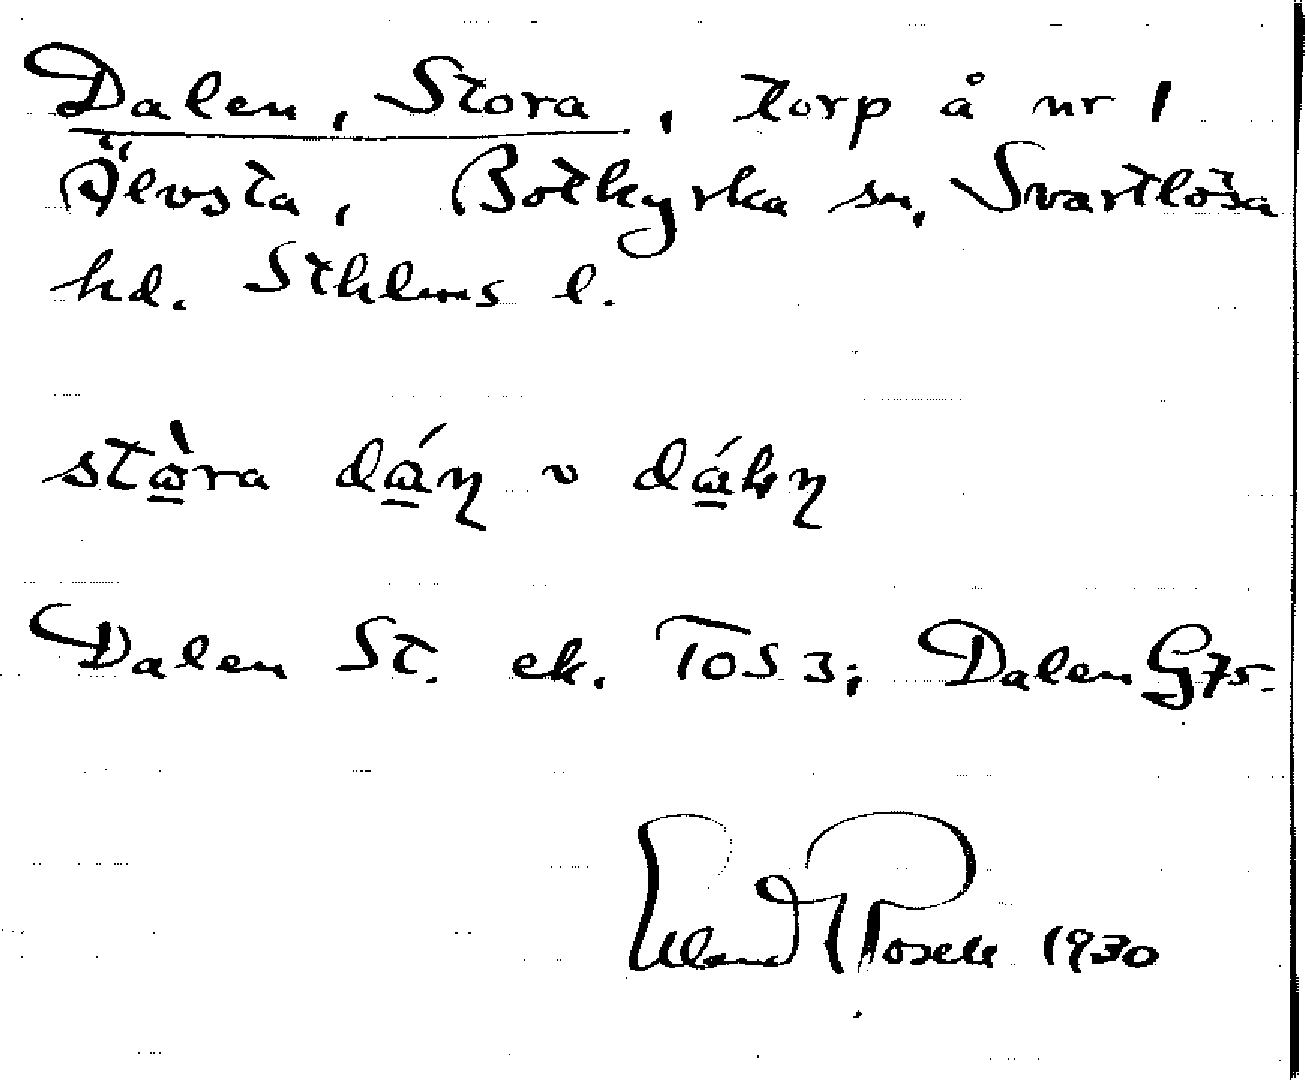 Dalen, Stora, torp å nr 1
Älvsta, Botkyrka sn, Svartlösa
hd. Sthlms l.
stὼ̲ra dά̲ꞃ ~ dά̲
Dalen St. ek. TOS 3; Dalen G75.
Erland Rosell 1930